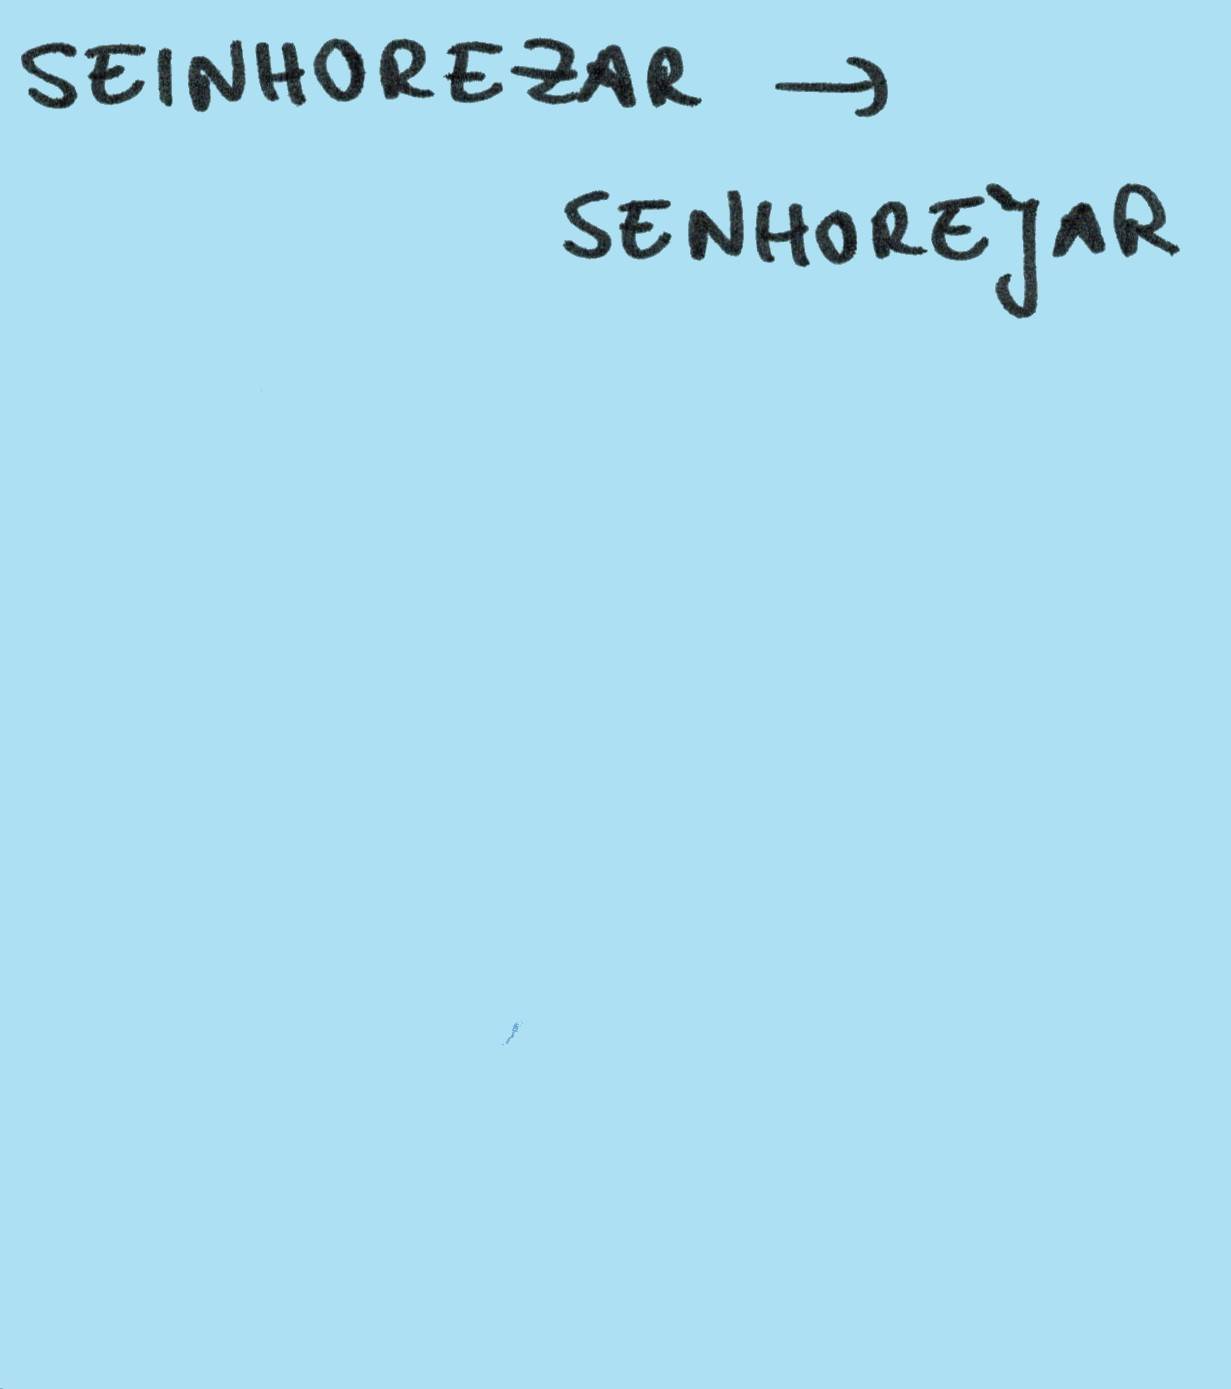 SEINHOREZAR →
SENHOREJAR